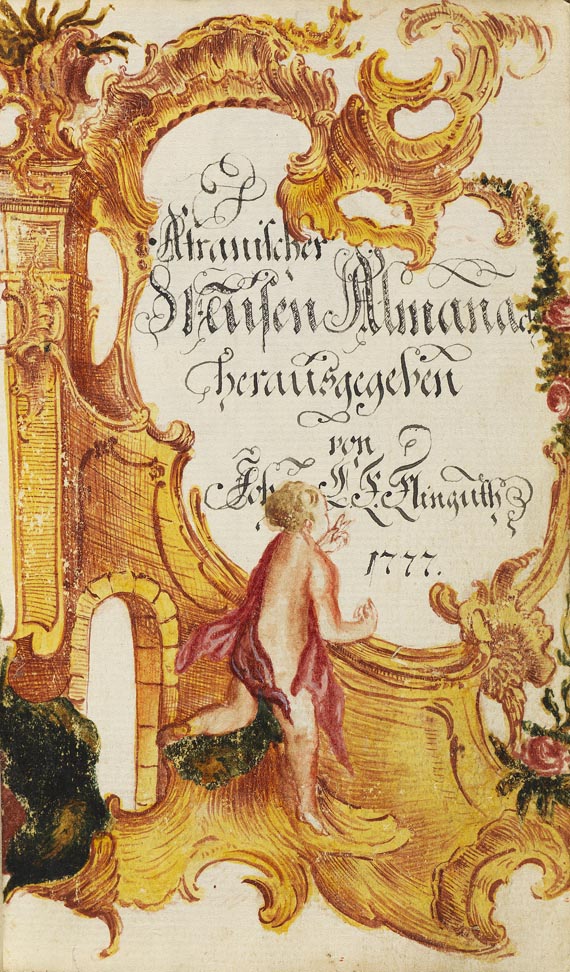 Afranischer
Musen Almanach
herausgegeben
von
Joh. C. F. Klinguth
1777.